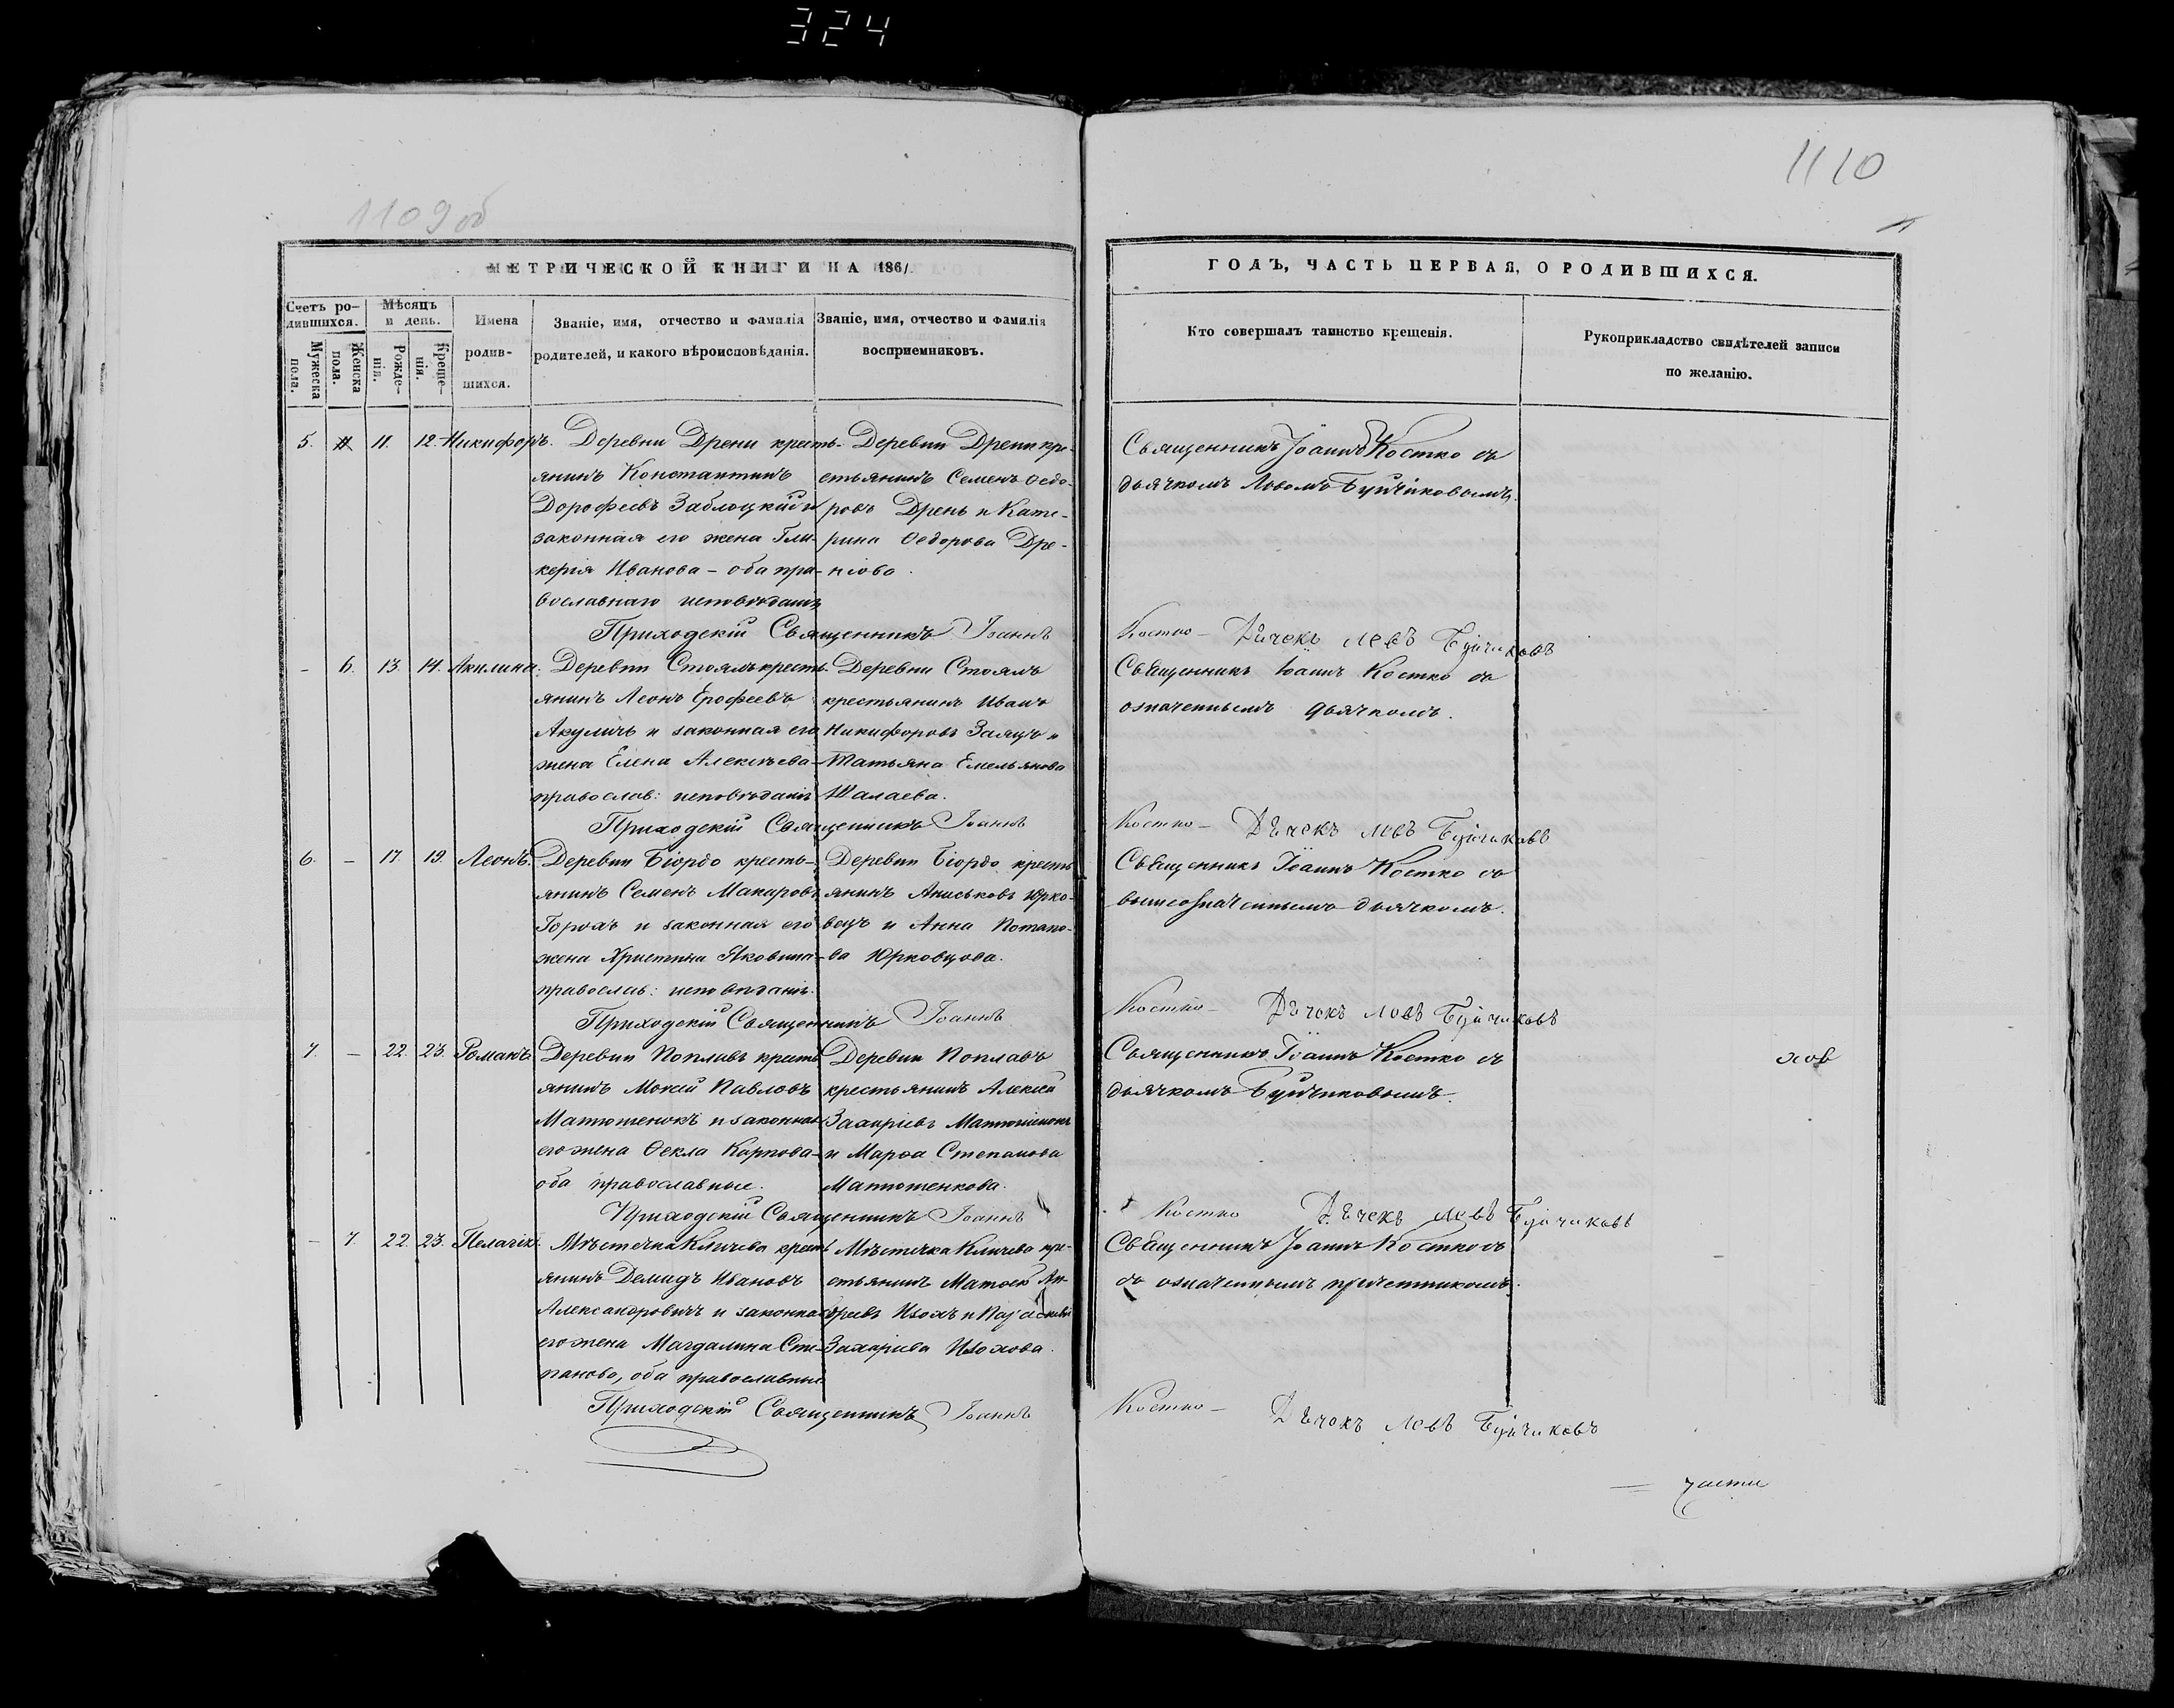 324
1109 об
1110
МЕТРИЧЕСКОЙ КНИГИ НА 1861
ГОДЪ, ЧАСТЬ ПЕРВАЯ, О РОДИВШИХСЯ.
Счетъ ро-
дившихся.
Мужеска пола.
Женска пола.
Мѣсяцъ
и день.
Рожде-
нія.
Креще-
нія.
Имена
родив-
шихся.
Званіе, имя, отчество и фамилія
родителей, и какого вѣроисповѣданія.
Званіе, имя, отчество и фамилія
воспріемниковъ.
Кто совершалъ таинство крещенія.
Рукоприкладство свидѣтелей записи
по желанію.
5. 11. 12. Никифоръ.
Деревни Дрени кресть-
янинъ Константинъ
Дорофеевъ Заблоцкій и
законная его жена Гли-
керія Иванова - оба пра-
вославнаго исповѣданія
Деревни Дрени кре-
стьянинъ Семенъ Ѳедо-
ровъ Дрень и Кате-
рина Ѳедорова Дре-
нiова.
Священникъ Іоаннъ Костко съ
дьячкомъ Львомъ Буйчиковымъ.
Приходскій Священникъ Іоаннъ Костко - Дьчекъ Левъ Буйчиковъ
- 6. 13. 14. Акилина.
Деревни Стоялъ кресть-
янинъ Леонъ Ерофеевъ
Акуличъ и законная его
жена Елена Алексѣева
православ: исповѣданія
Деревни Стоялъ
крестьянинъ Иванъ
Никифоровъ Заяцъ и
Татьяна Емельянова
Шалаева.
Священникъ Іоаннъ Костко съ
означеннымъ дьячкомъ.
Приходскій Священникъ Іоаннъ Костко - Дьчекъ Левъ Буйчиковъ
6. - 17. 19. Леонъ.
Деревни Біордо кресть-
янинъ Семенъ Макаровъ
Горохъ и законная его
жена Христина Яковина
православ: исповѣданія.
Деревни Біордо кресть
янинъ Аниськовъ Юрко-
вецъ и Анна Потапо-
ва Юрковцова.
Священникъ Іоаннъ Костко съ
вышеозначеннымъ дьячкомъ.
Приходскій Священникъ Іоаннъ Костко - Дьчекъ Левъ Буйчиковъ
7. - 22. 23. Романъ.
Деревни Поплавъ кресть
янинъ Моисій Павловъ
Матюшенокъ и законная
его жена Ѳекла Карпова
оба православные.
Деревни Поплавъ
крестьянинъ Алексій
Захаріевъ Матюшенокъ
и Марѳа Степанова
Матюшенкова.
Священникъ Іоаннъ Костко съ
дьячкомъ Буйчиковымъ.
Приходскій Священникъ Іоаннъ Костко Дьчекъ Левъ Буйчиковъ
- 7. 22. 23. Пелагія.
Мѣстечка Кличева крест
янинъ Демидъ Ивановъ
Александровичъ и законная
его жена Магдалина Сте-
панова, оба православные
Мѣстечка Кличева кре-
стьянинъ Матѳей Ан-
дреевъ Изохъ и
Захаріева Изохова.
Священникъ Іоаннъ Костко съ
съ означеннымъ причетникомъ.
Приходскій Священникъ Іоаннъ Костко - Дьчекъ Левъ Буйчиковъ
части